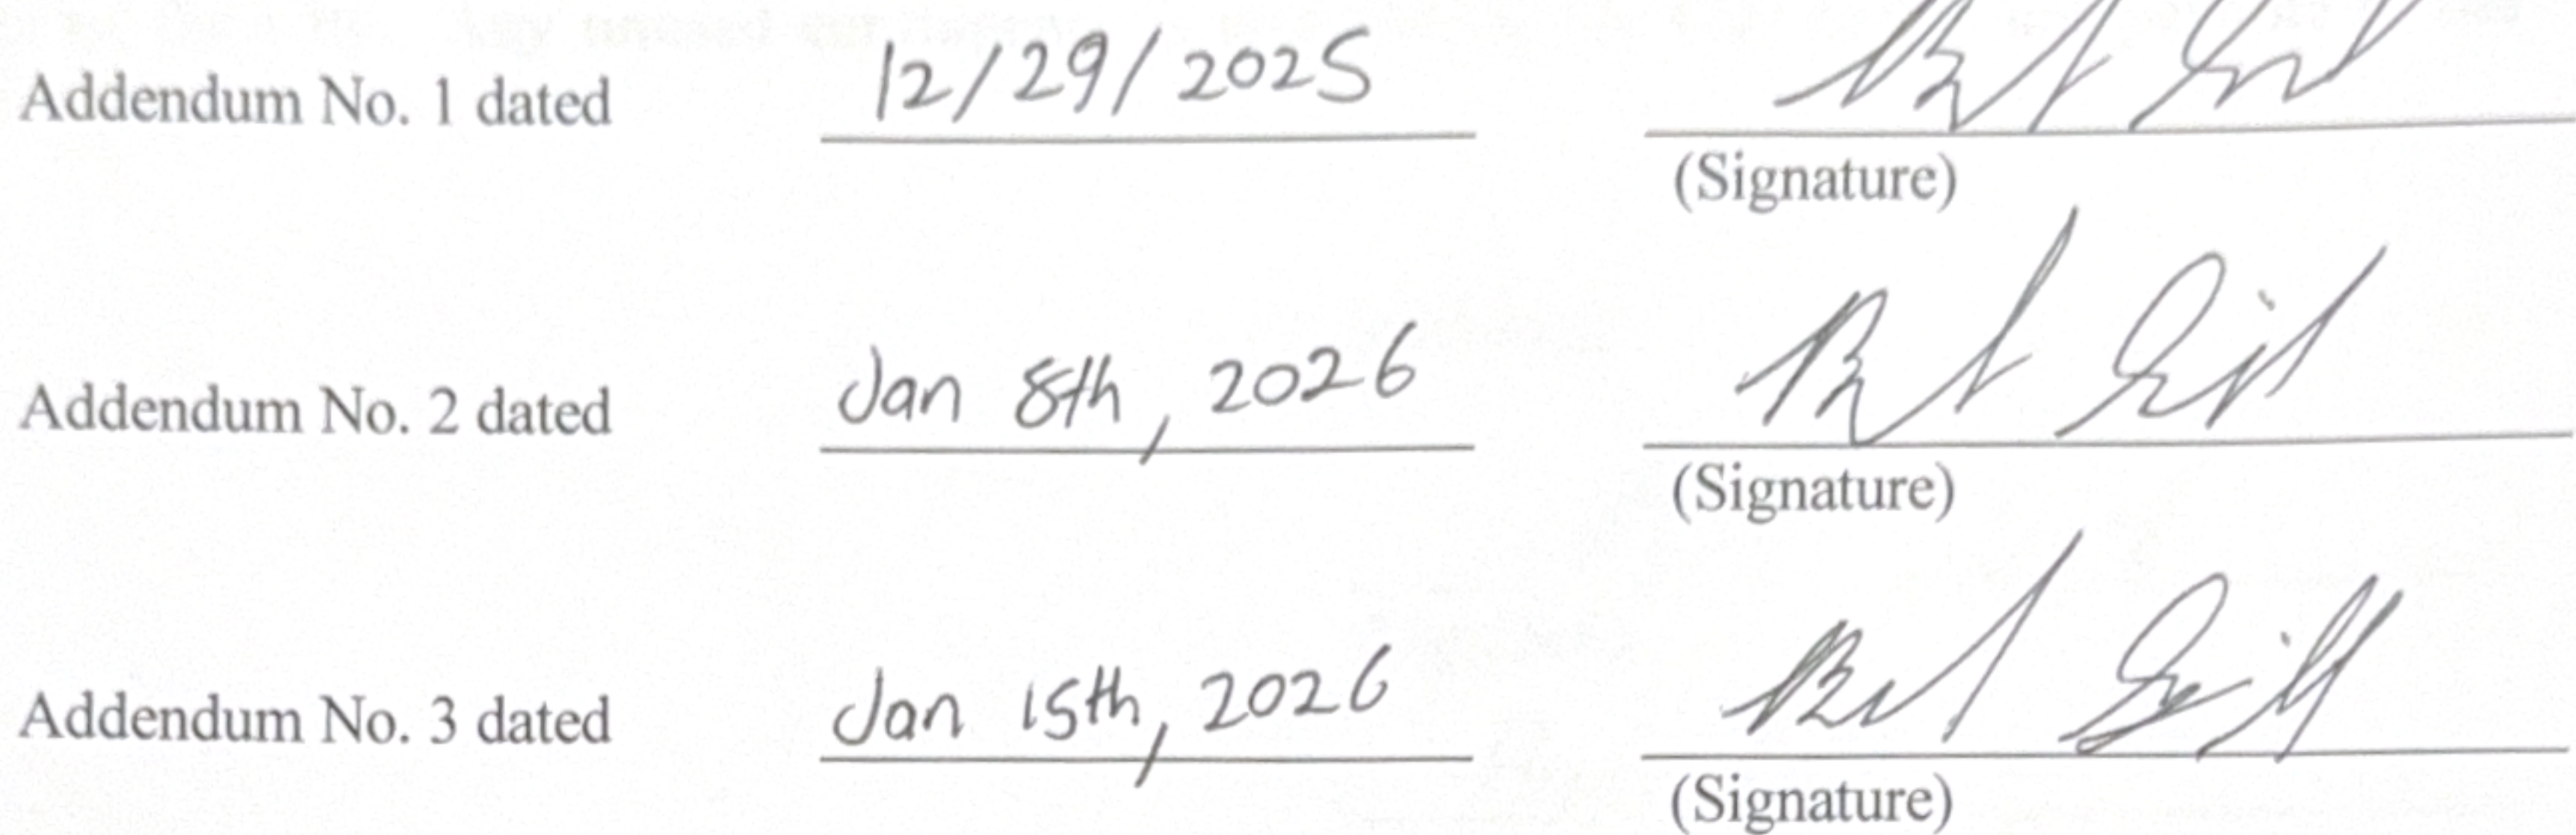 Addendum No. 1 dated 12/29/2025
(Signature)
Addendum No. 2 dated Jan 8th, 2026
(Signature)
Addendum No. 3 dated Jan 15th, 2026
(Signature)